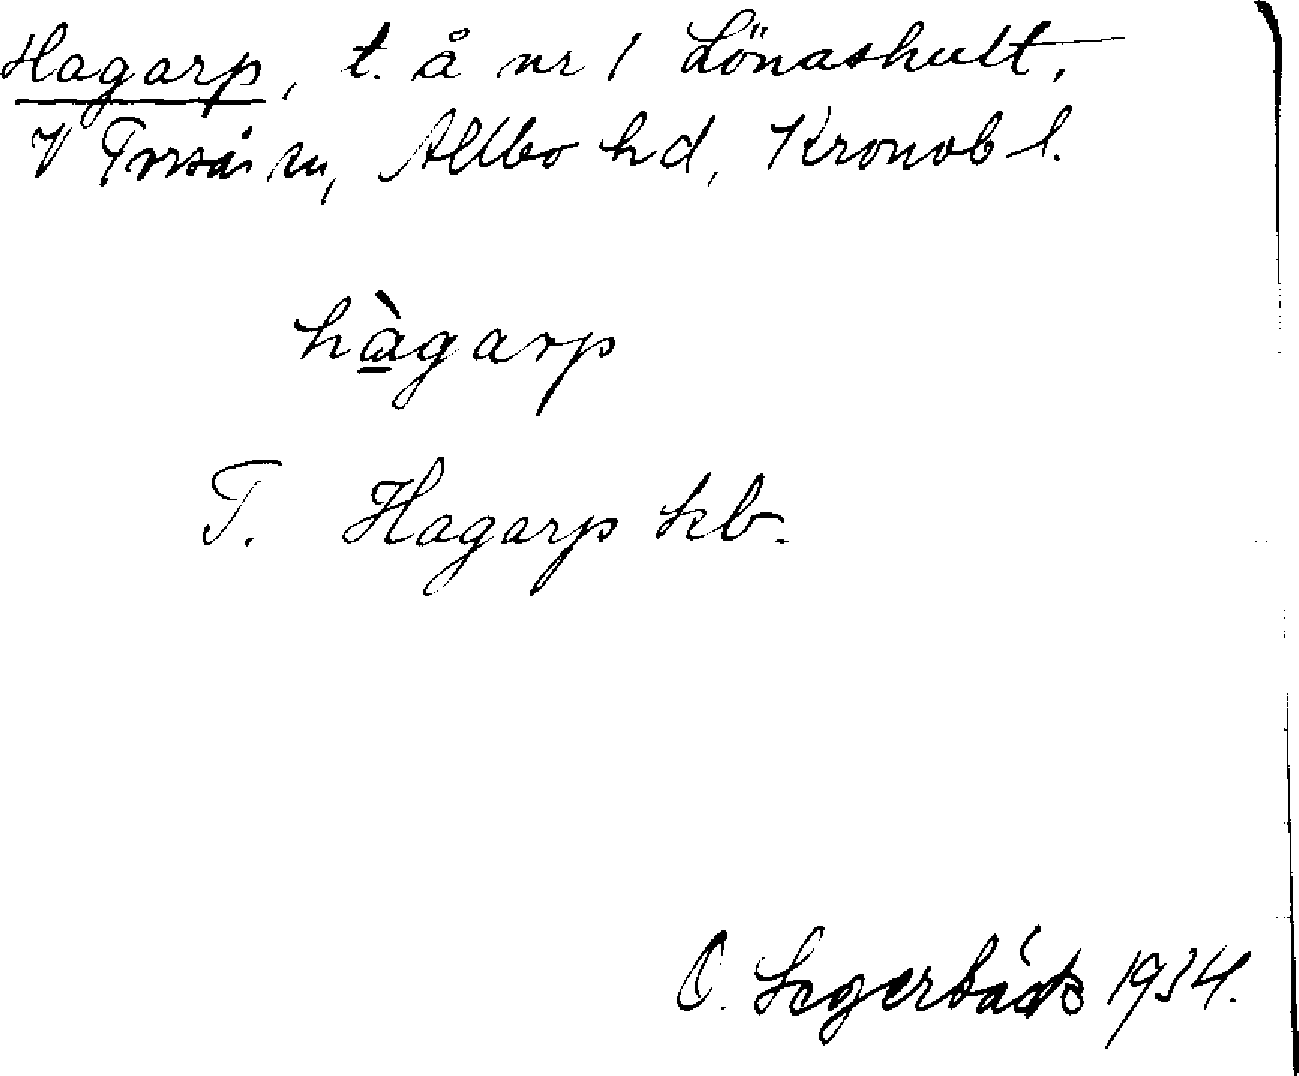 Hagarp, t. å nr 1 Lönashult,
V Torsås sn, Allbo hd, Kronob l.
hàgarp
T. Hagarp kb.
C. Segerbäck 1934.